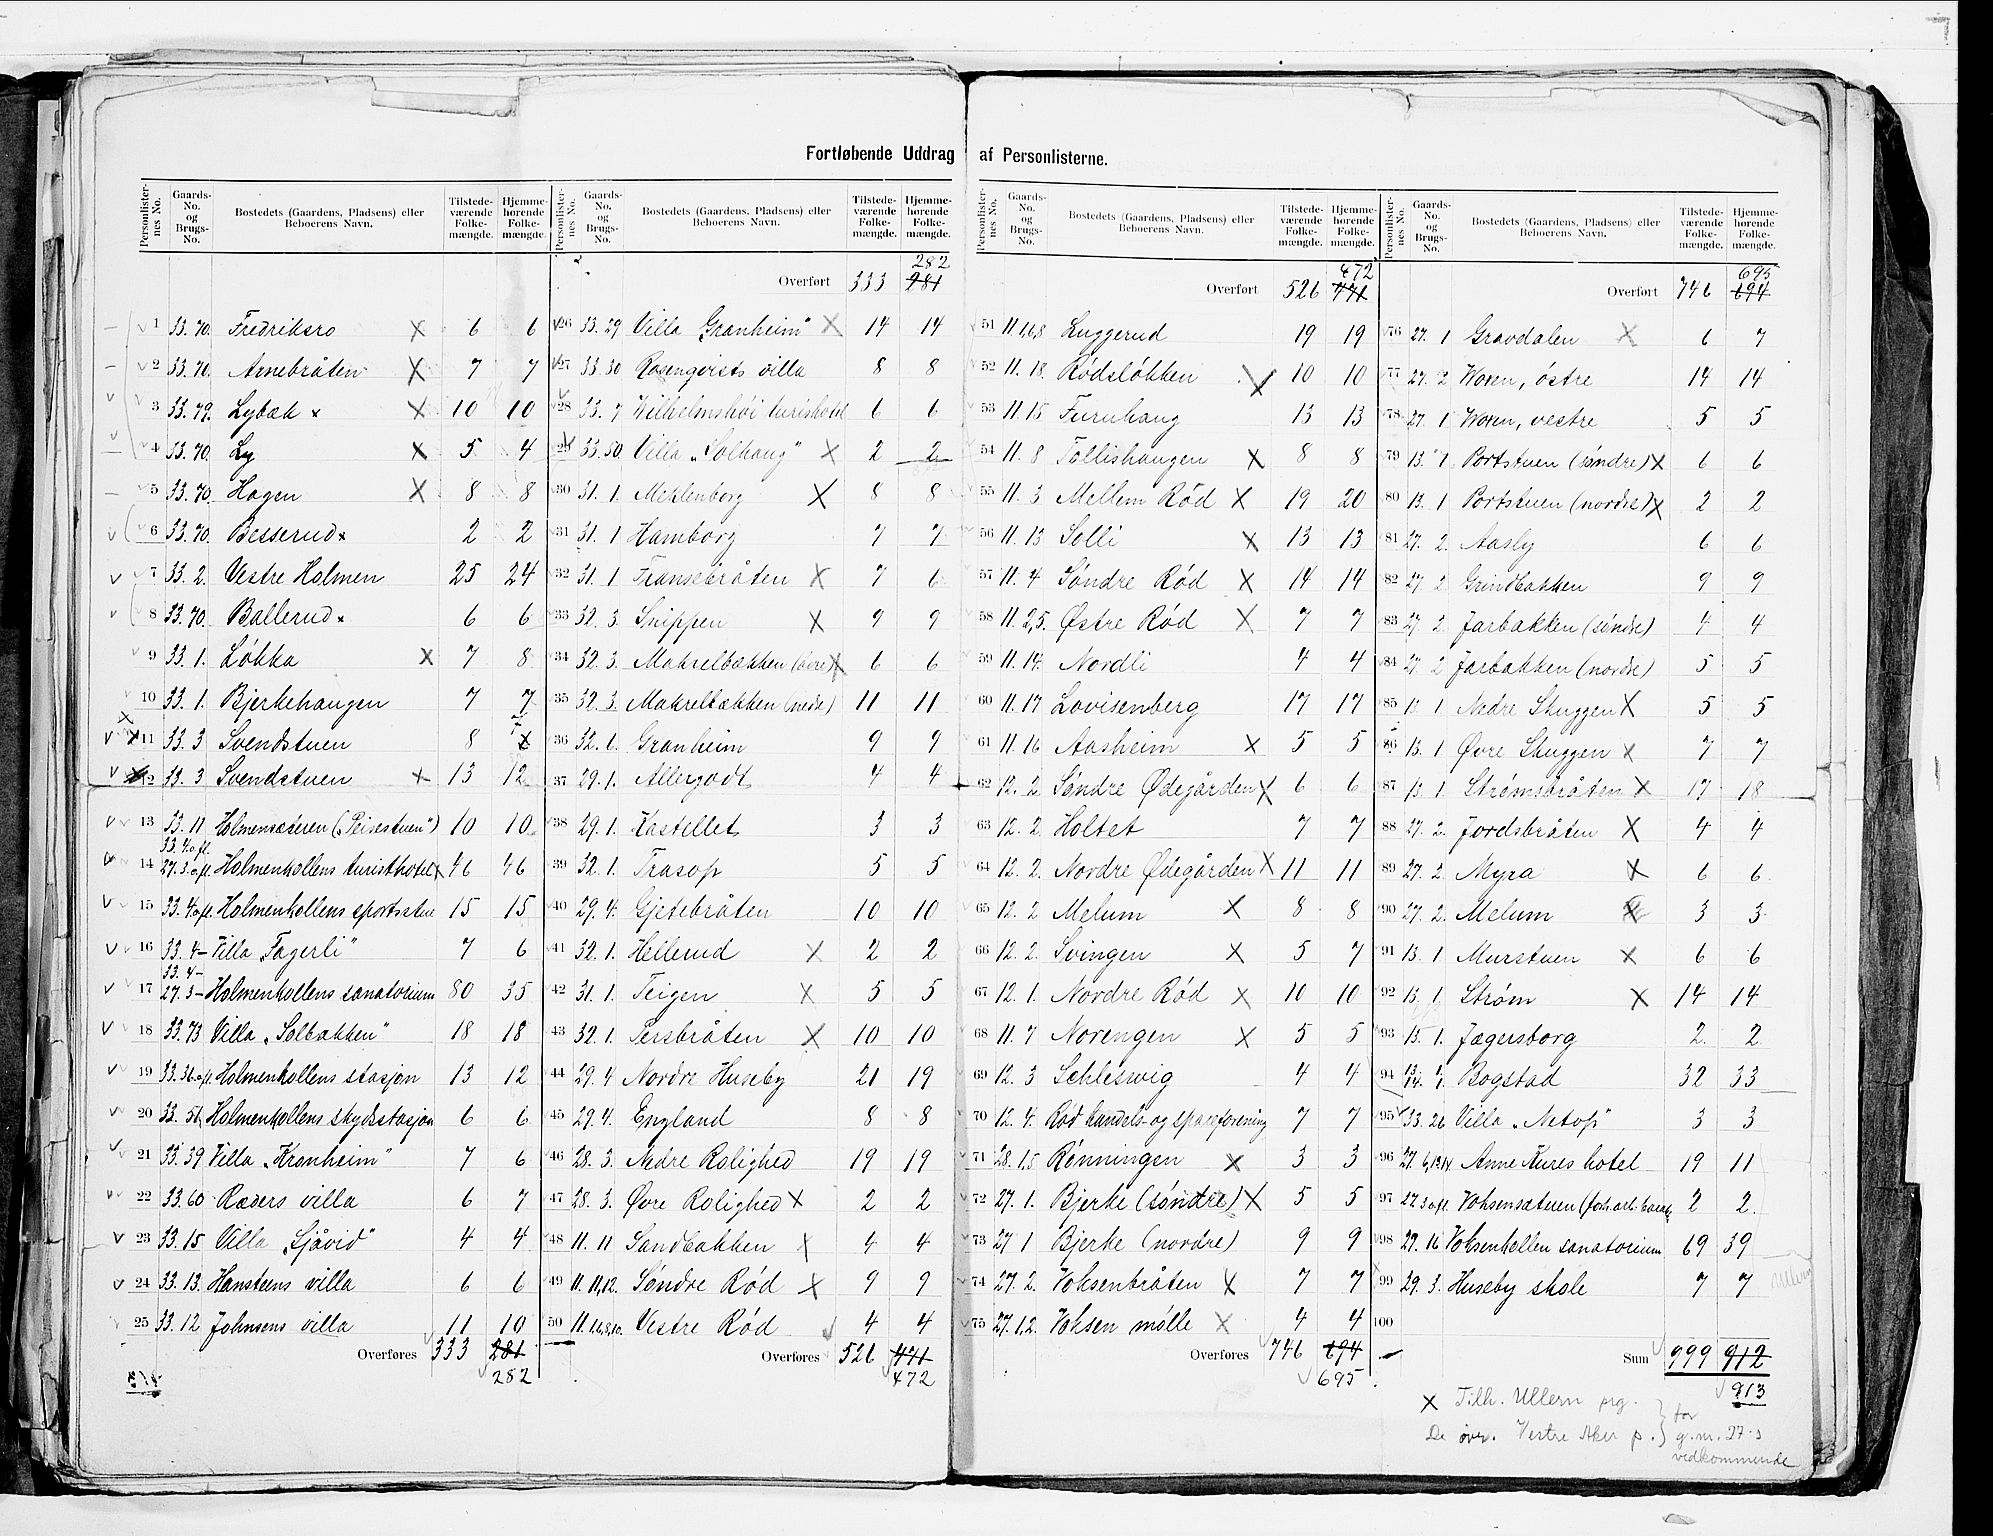 Fortløbende Uddrag af Personlisterne.
Personlisternes No. Gaards-No. og Brugs-No. Bostedets (Gaardens, Pladsens) eller Beboerens Navn. Tilstedeværende Folkemængde. Hjemmehørende Folkemængde.
1 33. 70. Fredriksro X 6 6
2 33. 70. Arnebråten X 7 7
3 33. 79. Lybæk x X 10 10
4 33. 70. Ly X 5 4
5 33. 70. Hagen X 8 8
6 33. 70. Besserud x 2 2
7 33. 2. Vestre Holmen 25 24
8 33. 70. Ballerud x 6 6
9 33. 1. Løkka X 7 8
10 33. 1. Bjerkehaugen 7 7
11 33. 3 Svendstuen 8 7
12 33. 3 Svendstuen X 13 12
13 33. 11 Holmensæteren („Peisestuen") 10 10
14 33. 4 o.fl. 27. 3. o.fl. Holmenkollens turisthotel X 46 46
15 33. 4 o.fl. Holmenkollens sportsstue 15 15
16 33. 4 – Villa „Fagerli" 7 6
17 33. 4 – 27. 3 – Holmenkollens sanatorium 80 35
18 33. 73 Villa „Solbakken" 18 18
19 33. 36. o.fl. Holmenkollens stasjon 13 12
20 33. 51 Holmenkollens skydsstasjon 6 6
21 33. 39 Villa „Kronheim" 7 6
22 33. 60 Ræders villa 6 7
23 33. 15 Villa „Sjåvid" 4 4
24 33. 13. Hansteens villa 6 6
25 33. 12 Johnsens villa 11 10
Overføres 333 281
282
Personlisternes No. Gaards-No. og Brugs-No. Bostedets (Gaardens, Pladsens) eller Beboerens Navn. Tilstedeværende Folkemængde. Hjemmehørende Folkemængde.
282
Overført 333 281
26 33. 29 Villa „Granheim" X 14 14
27 33. 30 Rosenqvists villa 8 8
28 33. 7 Wilhelmshøi turishotel 6 6
29 33. 50. Villa „Solhaug" X 2 2
30 31. 1. Meklenborg X 8 8
31 31. 1 Hamborg 7 7
32 31. 1 Fransebråten X 7 6
33 32. 3. Snippen X 9 9
34 32. 3. Makrelbækken (øvre) X 6 6
35 32. 3. Makrelbækken (nedre) 11 11
36 32. 1. Granheim 9 9
37 29. 1. Allergodt 4 4
38 29. 1. Kastellet 3 3
39 32. 1. Trasop 5 5
40 29. 4. Gjetebråten 10 10
41 32. 1. Hellerud X 2 2
42 31. 1. Teigen X 5 5
43 32. 1. Persbråten X 10 10
44 29. 4 Nordre Huseby 21 19
45 29. 4. England 8 8
46 28. 3. Nedre Rolighed 19 19
47 28. 3. Øvre Rolighed X 2 2
48 11. 11 Sandbakken X 4 4
49 11. 11,12. Søndre Rød X 9 9
50 11. 1,6,8,10. Vestre Rød 4 4
Overføres 526 471
472
Personlisternes No. Gaards-No. og Brugs-No. Bostedets (Gaardens, Pladsens) eller Beboerens Navn. Tilstedeværende Folkemængde. Hjemmehørende Folkemængde.
472
Overført 526 471
51 11. 1,6,8 Luggerud 19 19
52 11. 18. Rødsløkken X 10 10
53 11. 15 Furuhaug 13 13
54 11. 8 Tollishaugen X 8 8
55 11. 3 Mellem Rød X 19 20
56 11. 13 Solli X 13 13
57 11. 4 Søndre Rød X 14 14
58 11. 2,5. Østre Rød X 7 7
59 11. 14. Nordli 4 4
60 11. 17 Lovisenberg 17 17
61 11. 16 Aasheim X 5 5
62 12. 2 Søndre Ødegården X 6 6
63 12. 2. Holtet 7 7
64 12. 2. Nordre Ødegården X 11 11
65 12. 2 Melum X 8 8
66 12. 2. Svingen X 5 7
67 12. 1. Nordre Rød X 10 10
68 11. 7 Norengen X 5 5
69 12. 3 Schleswig 4 4
70 12. 4. Rød handels- og spareforening 7 7
71 28. 1,5 Rønningen X 3 3
72 27. 1. Bjerke (søndre) X 5 5
73 27 1 Bjerke (nordre) 9 9
74 27. 2. Voksenbråten X 7 7
75 27. 1,2. Voksen mølle X 4 4
Overføres 746 694
695
Personlisternes No. Gaards-No. og Brugs-No. Bostedets (Gaardens, Pladsens) eller Beboerens Navn. Tilstedeværende Folkemængde. Hjemmehørende Folkemængde.
695
Overført 746 694
76 27. 1 Gravdalen X 6 7
77 27. 2 Woxen, østre 14 14
78 27. 1 Woxen, vestre 5 5
79 13. 1 Portstuen (søndre) X 6 6
80 13. 1 Portstuen (nordre) X 2 2
81 27. 2. Aasly 6 6
82 27. 2 Grindbakken 9 9
83 27. 2. Jarbakken (søndre) 4 4
84 27. 2 Jarbakken (nordre) 5 5
85 13. 1 Nedre Skuggen X 5 5
86 13. 1 Øvre Skuggen X 7 7
87 13. 1 Strømsbråten X 17 18
88 27. 2. Jordsbråten X 4 4
89 27. 2. Myra X 6 6
90 27. 2. Melum X 3 3
91 13. 1 Murstuen X 6 6
92 13. 1. Strøm X 14 14
93 13. 1. Jægersborg 2 2
94 13. 1 14. 1. Bogstad 32 33
95 33. 26 Villa „Netop" 3 3
96 27. 6,13,14 Anne Kures hotel 19 11
97 27. 3 o.fl. Voksensæteren 2 2
98 27. 16 Voksenkollen sanatorium 69 39
99 29. 3. Huseby skole 7 7 Ullern
100
Sum 999 912
913
X Tilh. Ullern prg.
De øvr. Vestre Aker p. } for g.nr. 27-s vedkommende